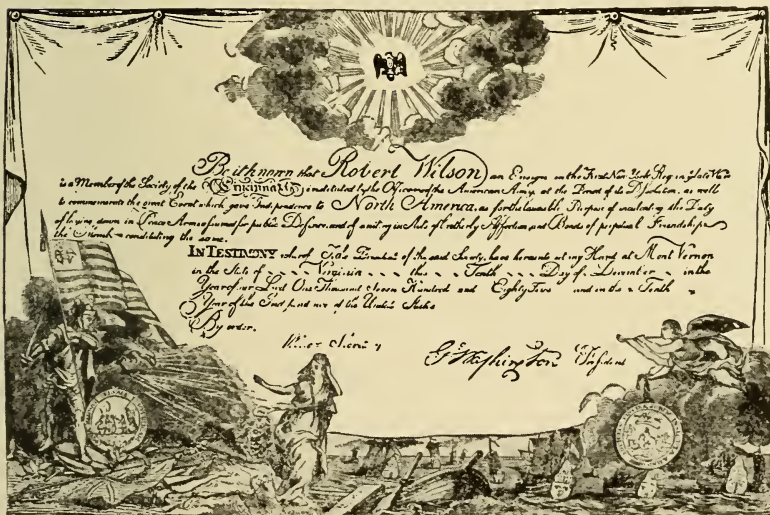 Be it known that Robert Wilson an Ensign in the First New York Reg in ye late War
is a Member of the Society of the Cincinnati; instituted by the Officers of the American Army, at the Period of its Dissolution, as well
to commemorate the great Event which gave Independence to North America, as for the laudable Purpose of inculcating the Duty
of laying down in Peace Arms assumed for public Defence, and of uniting in Acts of brotherly Affection, and Bonds of perpetual Friendship
the Members constituting the same.
IN TESTIMONY whereof I, the President of the said Society, have hereunto set my Hand at Mont Vernon
in the State of Virginia this Tenth Day of December in the
Year of our Lord One Thousand Seven Hundred and Eighty Five and in the Tenth
Year of the Independence of the United States
By order.
G. Washington President